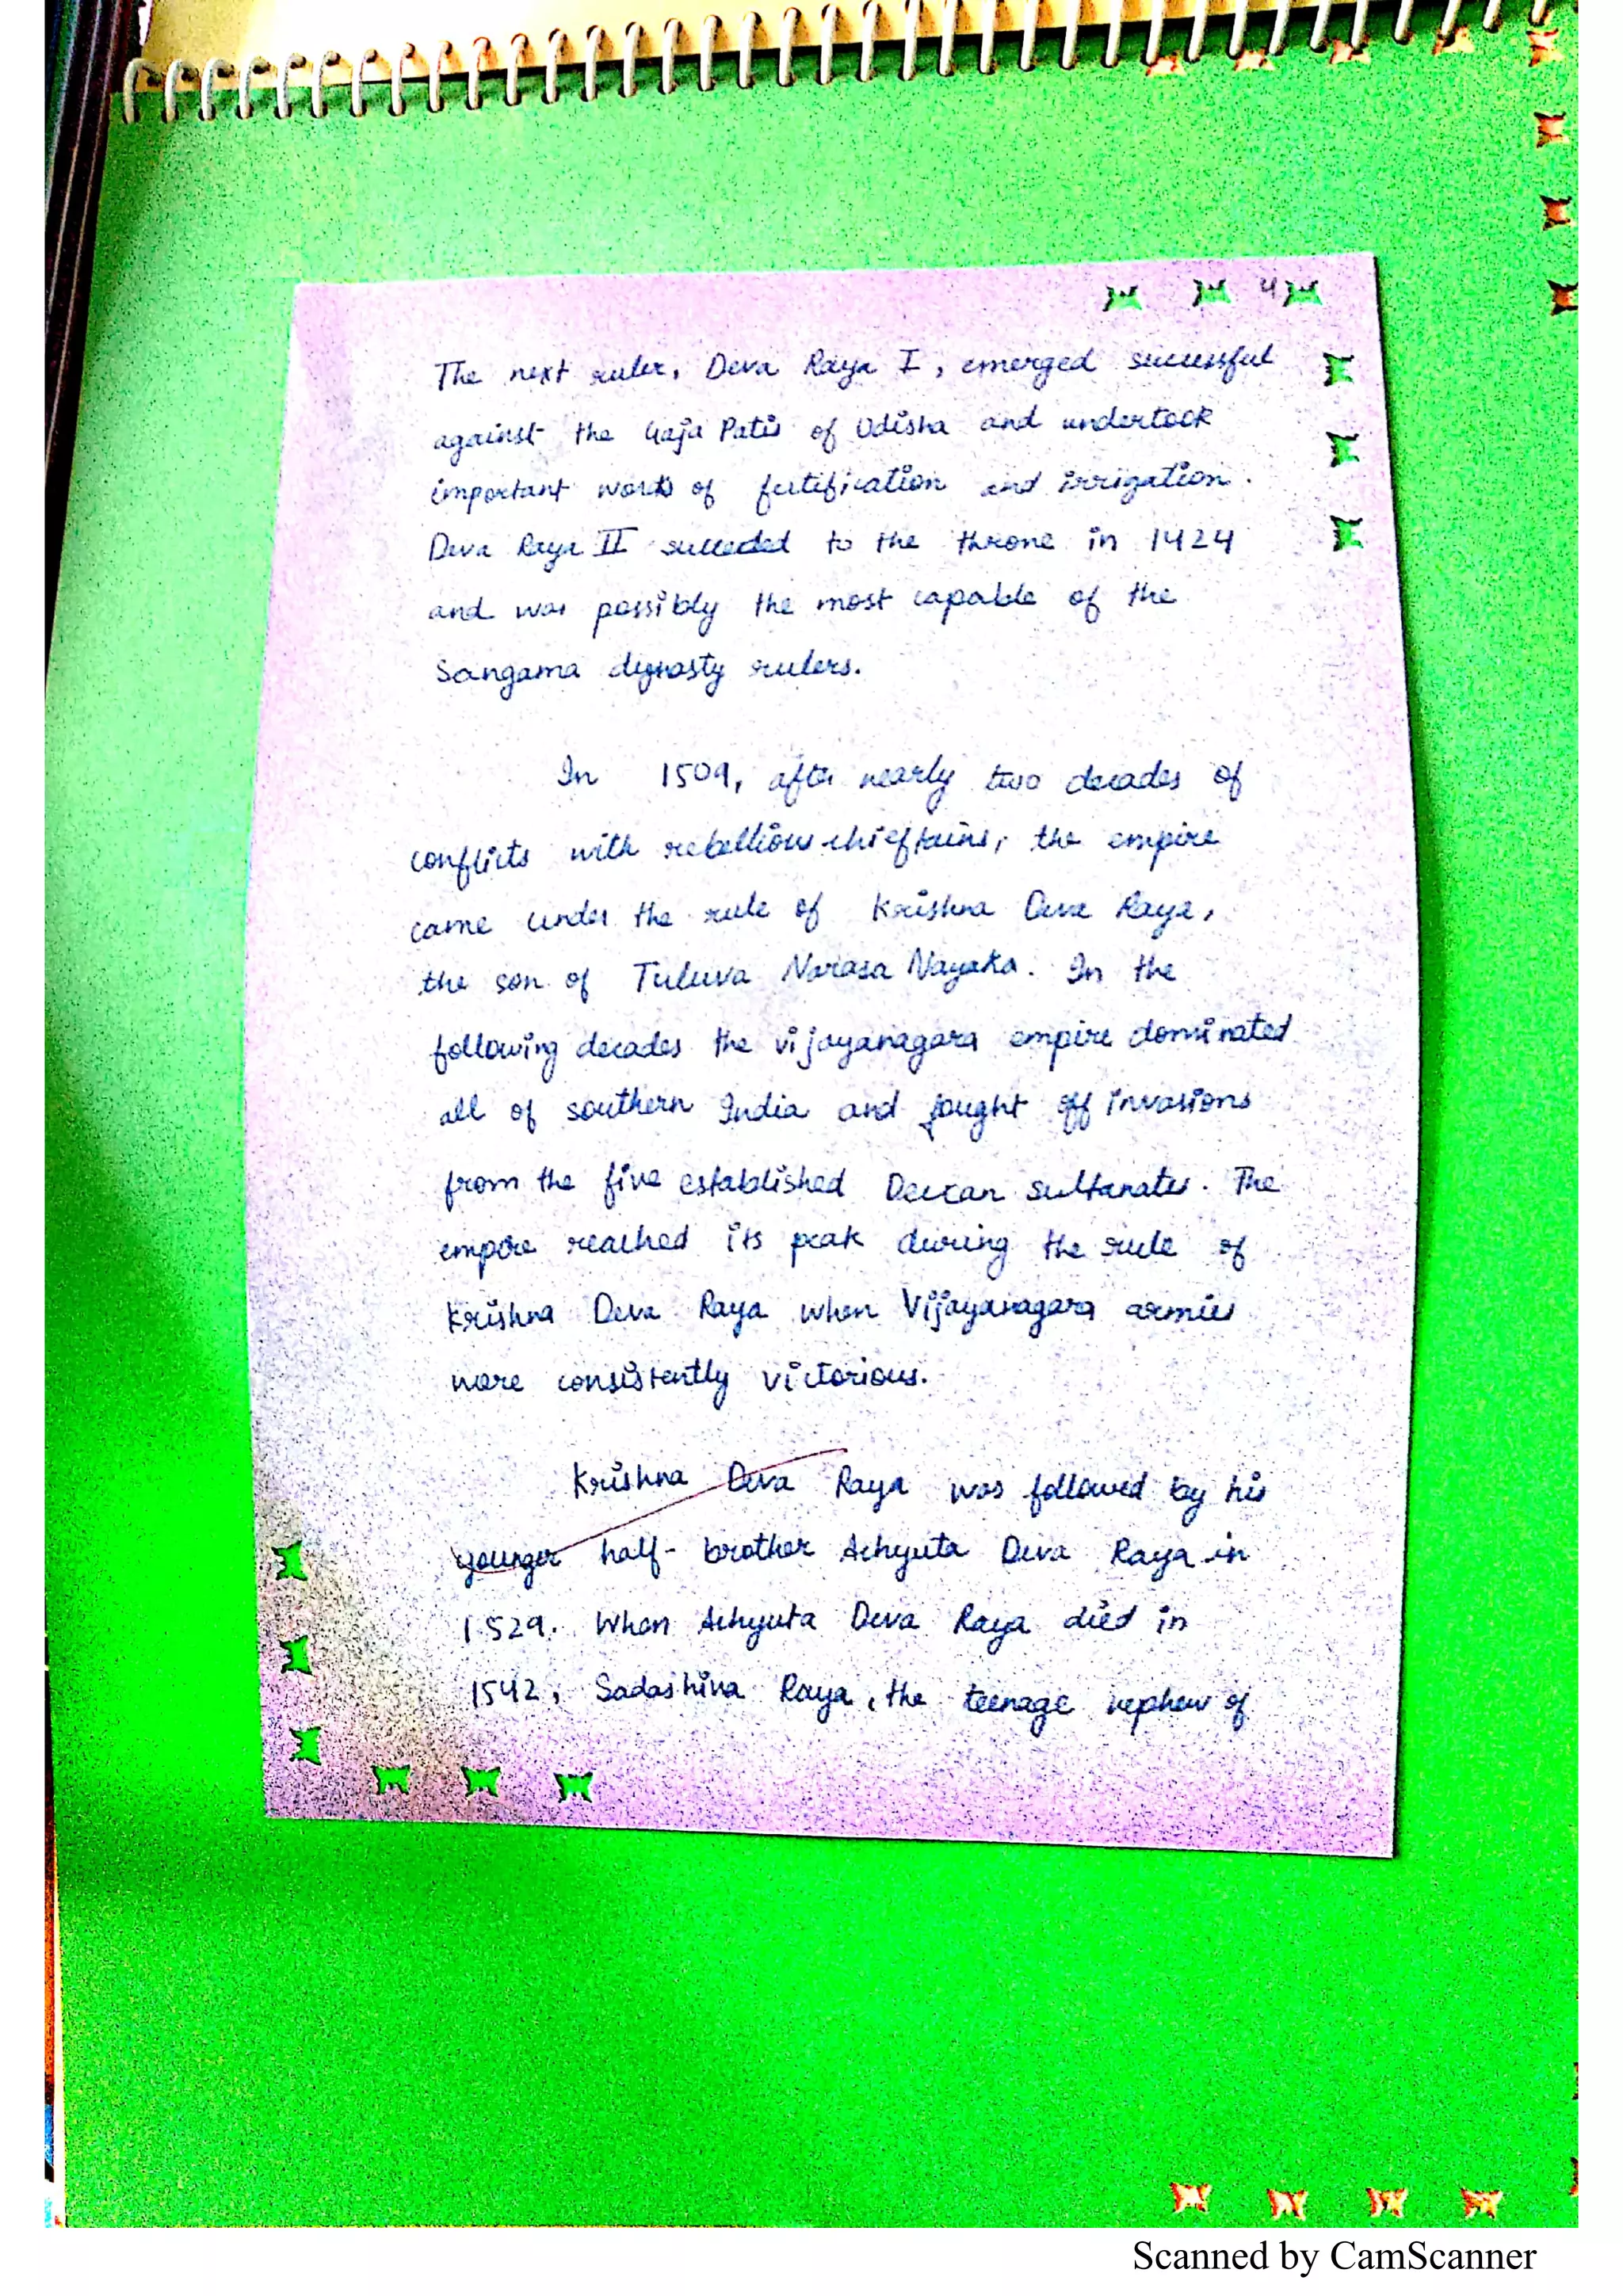 4
The next ruler, Deva Raya I, emerged successful
against the Gaja Patis of Odisha and undertook
important works of fortification and irrigation.
Deva Raya II succeded to the throne in 1424
and was possibly the most capable of the
Sangama dynasty rulers.
In 1509, after nearly two decades of
conflicts with rebellious chieftains, the empire
came under the rule of Krishna Deva Raya,
the son of Tuluva Narasa Nayaka. In the
following decades the vijayanagara empire dominated
all of southern India and fought off invasions
from the five established Deccan sultanates. The
empire reached its peak during the rule of
Krishna Deva Raya when Vijayanagara armies
were consistently victorious.
Krishna Deva Raya was followed by his
younger half-brother Achyuta Deva Raya in
1529. When Achyuta Deva Raya died in
1542, Sadashiva Raya, the teenage nephew of
Scanned by CamScanner